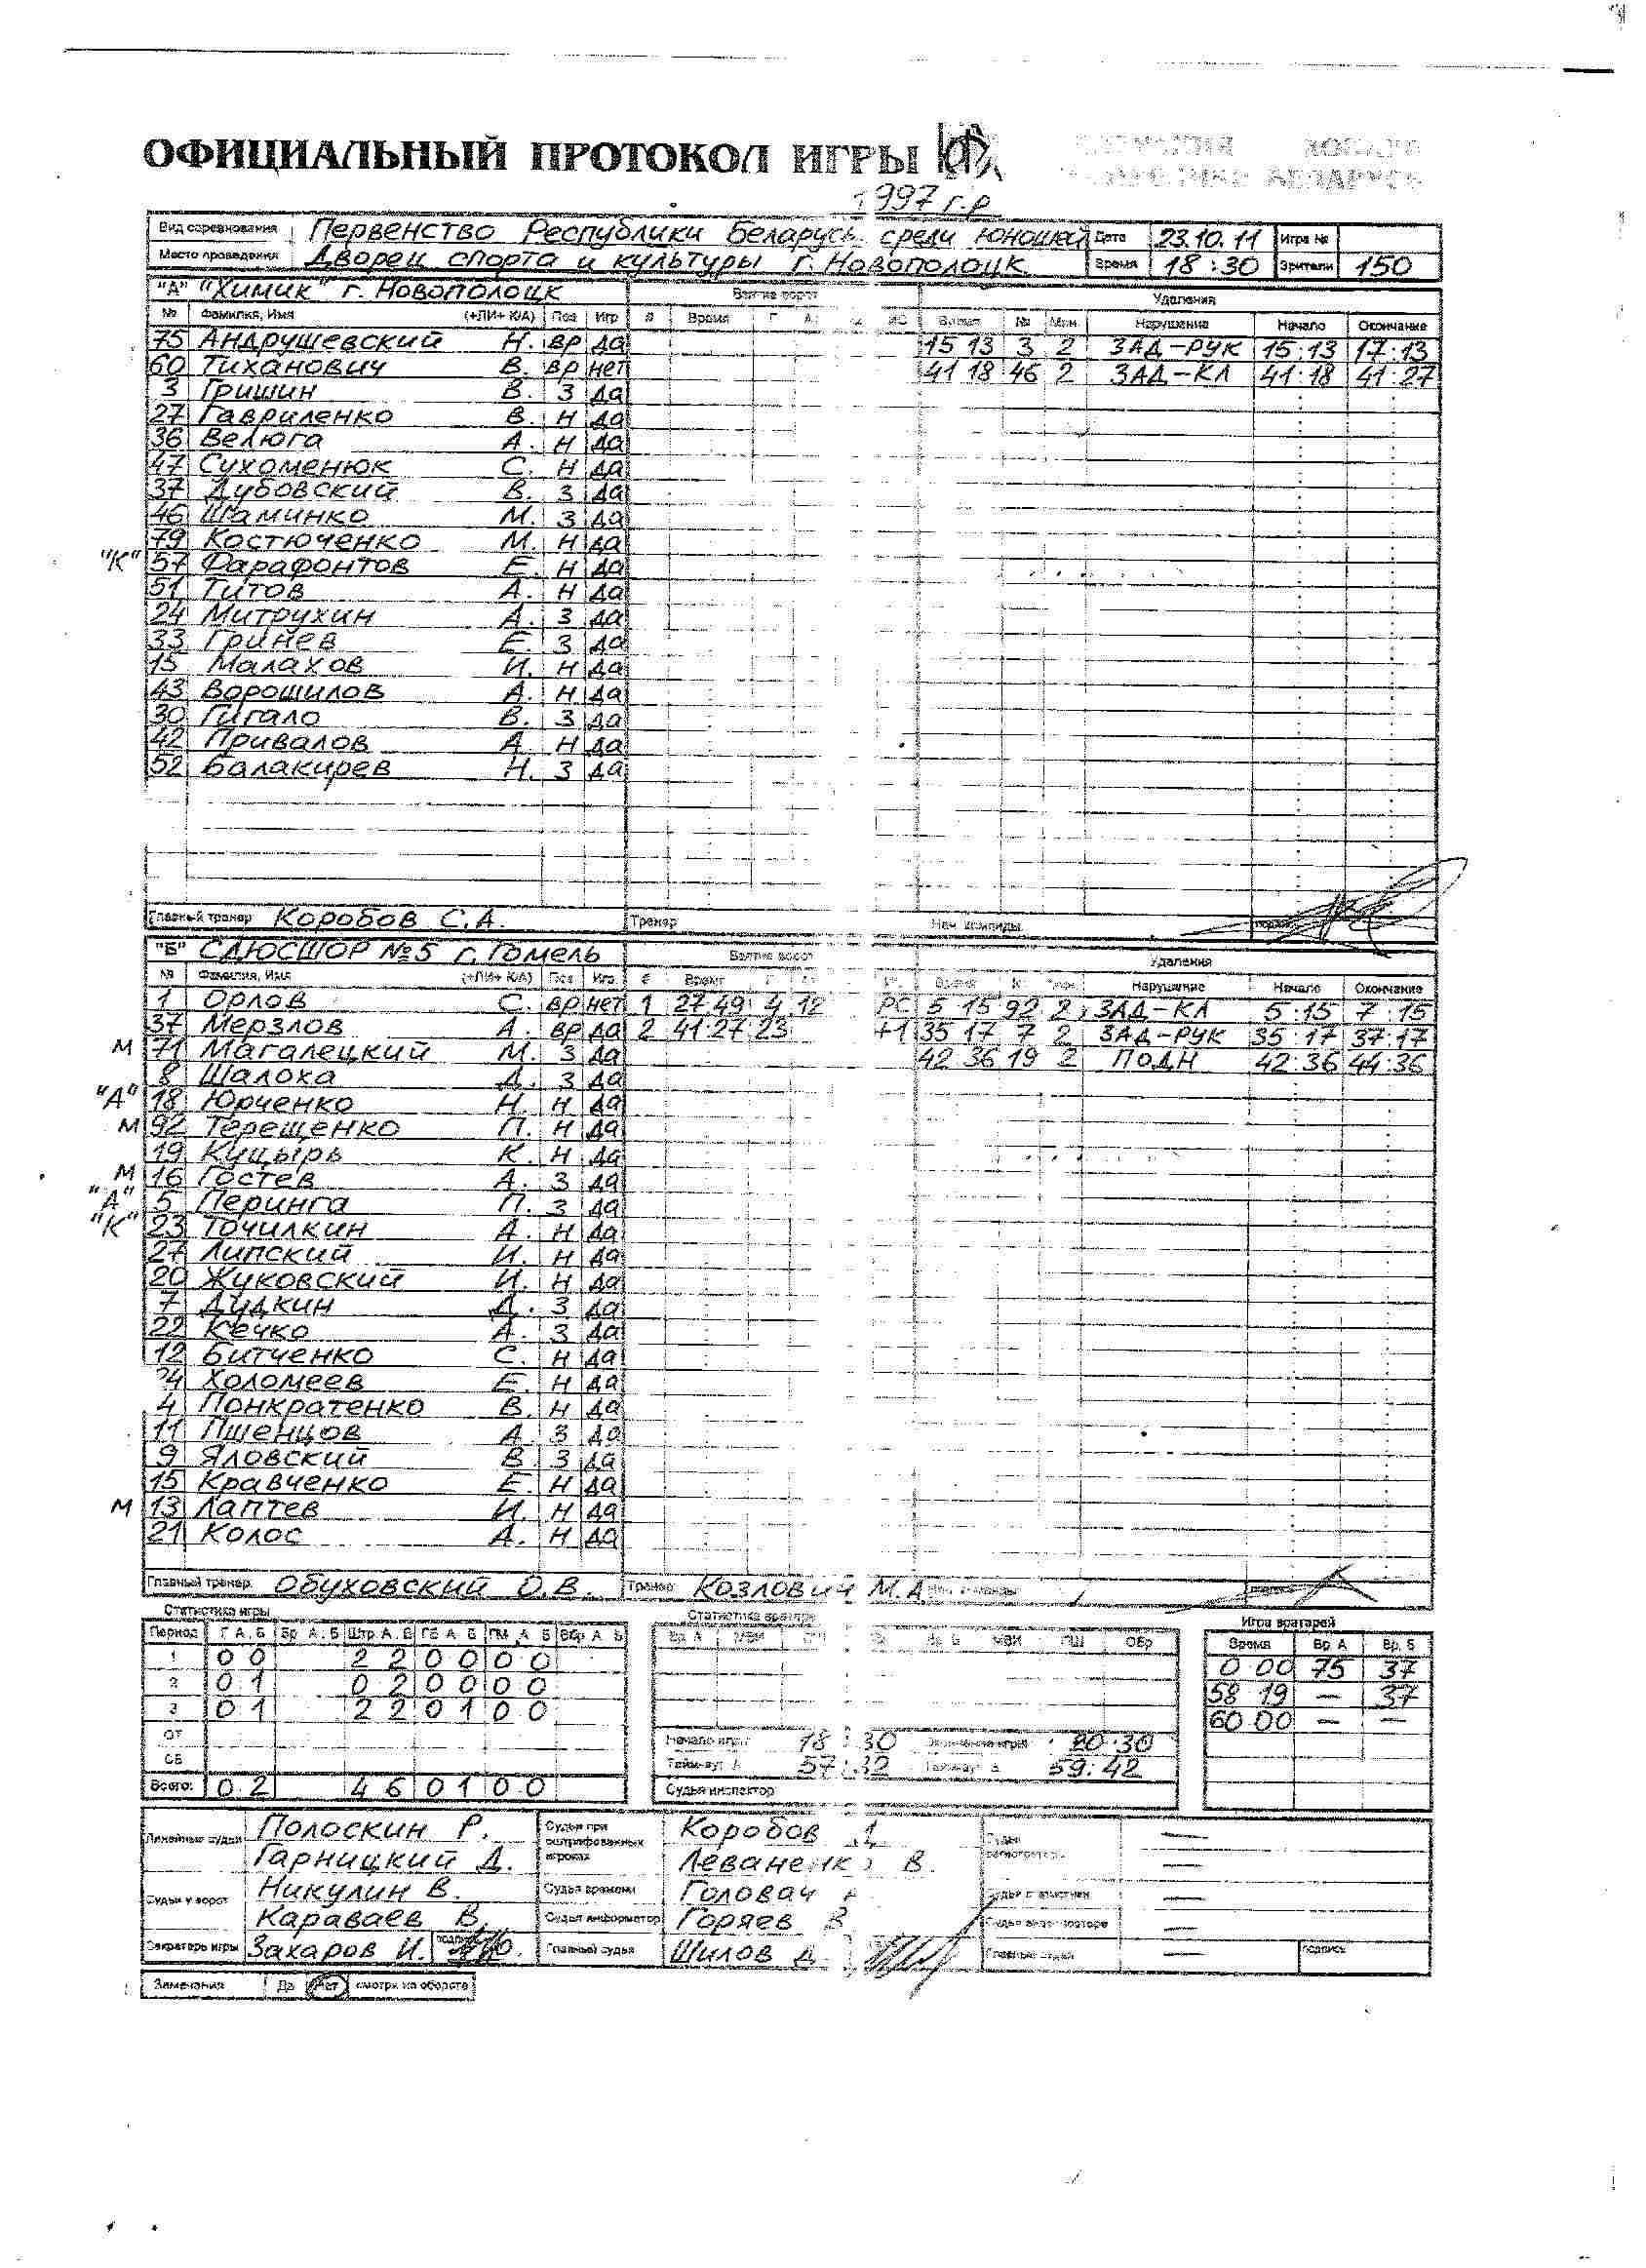 ОФИЦИАЛЬНЫЙ ПРОТОКОЛ ИГРЫ
1997 г.р
Вид соревнования Первенство Республики Беларусь среди юношей Дата 23.10.11 Игра №
Место проведения Дворец спорта и культуры г. Новополоцк Время 18:30 Зрители 150
"А" "Химик" г. Новополоцк Взятие ворот Удаления
№ Фамилия, Имя (+ЛИ+ К/А) Поз Игр # Время Г А ИС Время № Мин Нарушение Начало Окончание
75 Андрушевский Н. вр да 15 13 3 2 ЗАД-РУК 15:13 17:13
60 Тиханович В. вр нет 41 18 46 2 ЗАД-КЛ 41:18 41:27
3 Гришин В. З да
27 Гавриленко В. Н да
36 Велюга А. Н да
47 Сухоменюк С. Н да
37 Дубовский В. З да
46 Шаминко М. З да
79 Костюченко М. Н да
"К" 57 Фарафонтов Е. Н да
51 Титов А. Н да
24 Митрухин А. З да
33 Гринев Е. З да
15 Малахов И. Н да
43 Ворошилов А. Н да
30 Гигало В. З да
42 Привалов А Н да
52 Балакирев Н. З да
Главный тренер Коробов С.А. Тренер Нач. команды
"Б" СДЮСШОР №5 г. Гомель Взятие ворот Удаления
№ Фамилия, Имя (+ЛИ+ К/А) Поз Игр # Время Время Нарушение Начало Окончание
1 Орлов С. вр нет 1 27 49 4 12 РС 5 15 92 2 ЗАД-КЛ 5:15 7:15
37 Мерзлов А. вр да 2 41:27 23 +1 35 17 7 2 ЗАД-РУК 35:17 37:17
М 71 Магалецкий М. З да 42 36 19 2 ПОДН 42:36 44:36
8 Шалоха Д. З да
"А" 18 Юрченко Н. Н да
М 92 Терещенко П. Н да
19 Куцырь К. Н да
М 16 Гостев А. З да
"А" 5 Перинга П. З да
"К" 23 Точилкин А. Н да
27 Липский И. Н да
20 Жуковский И. Н да
7 Дудкин Д. З да
22 Кечко А. З да
12 Битченко С. Н да
Холомеев Е. Н да
4 Понкратенко В. Н да
11 Пшенцов А. З да
9 Яловский В. З да
15 Кравченко Е. Н да
М 13 Лаптев И. Н да
21 Колос А. Н да
Главный тренер Обуховский О.В. Тренер Козлович М.А
Статистика игры Статистика вратарей Игра вратарей
Период Г А, Б Бр А, Б Штр А, Б ГБ А Б ГМ А Б ВБр А Б Вр А Вр Б МВИ ПШ ОБр Время Вр. А Вр. Б
1 0 0 2 2 0 0 0 0 0 00 75 37
2 0 1 0 2 0 0 0 0 58 19 — 37
3 0 1 2 2 0 1 0 0 60 00 — —
ОТ Начало игры 18:30 Окончание игры 20:30
СБ Тайм-аут А 57:32 Тайм-аут Б 59:42
Всего: 0 2 4 6 0 1 0 0 Судья инспектор
Линейные судьи Полоскин Р. Судьи при оштрафованных игроках Коробов —
Гарницкий Д. Леваненко В. —
Судьи у ворот Никулин В. Судья времени Головач —
Караваев В. Судья информатор Горяев В —
Секретарь игры Захаров И. подпись Главный судья Шилов Д. — подпись
Замечания Да Нет смотри на обороте